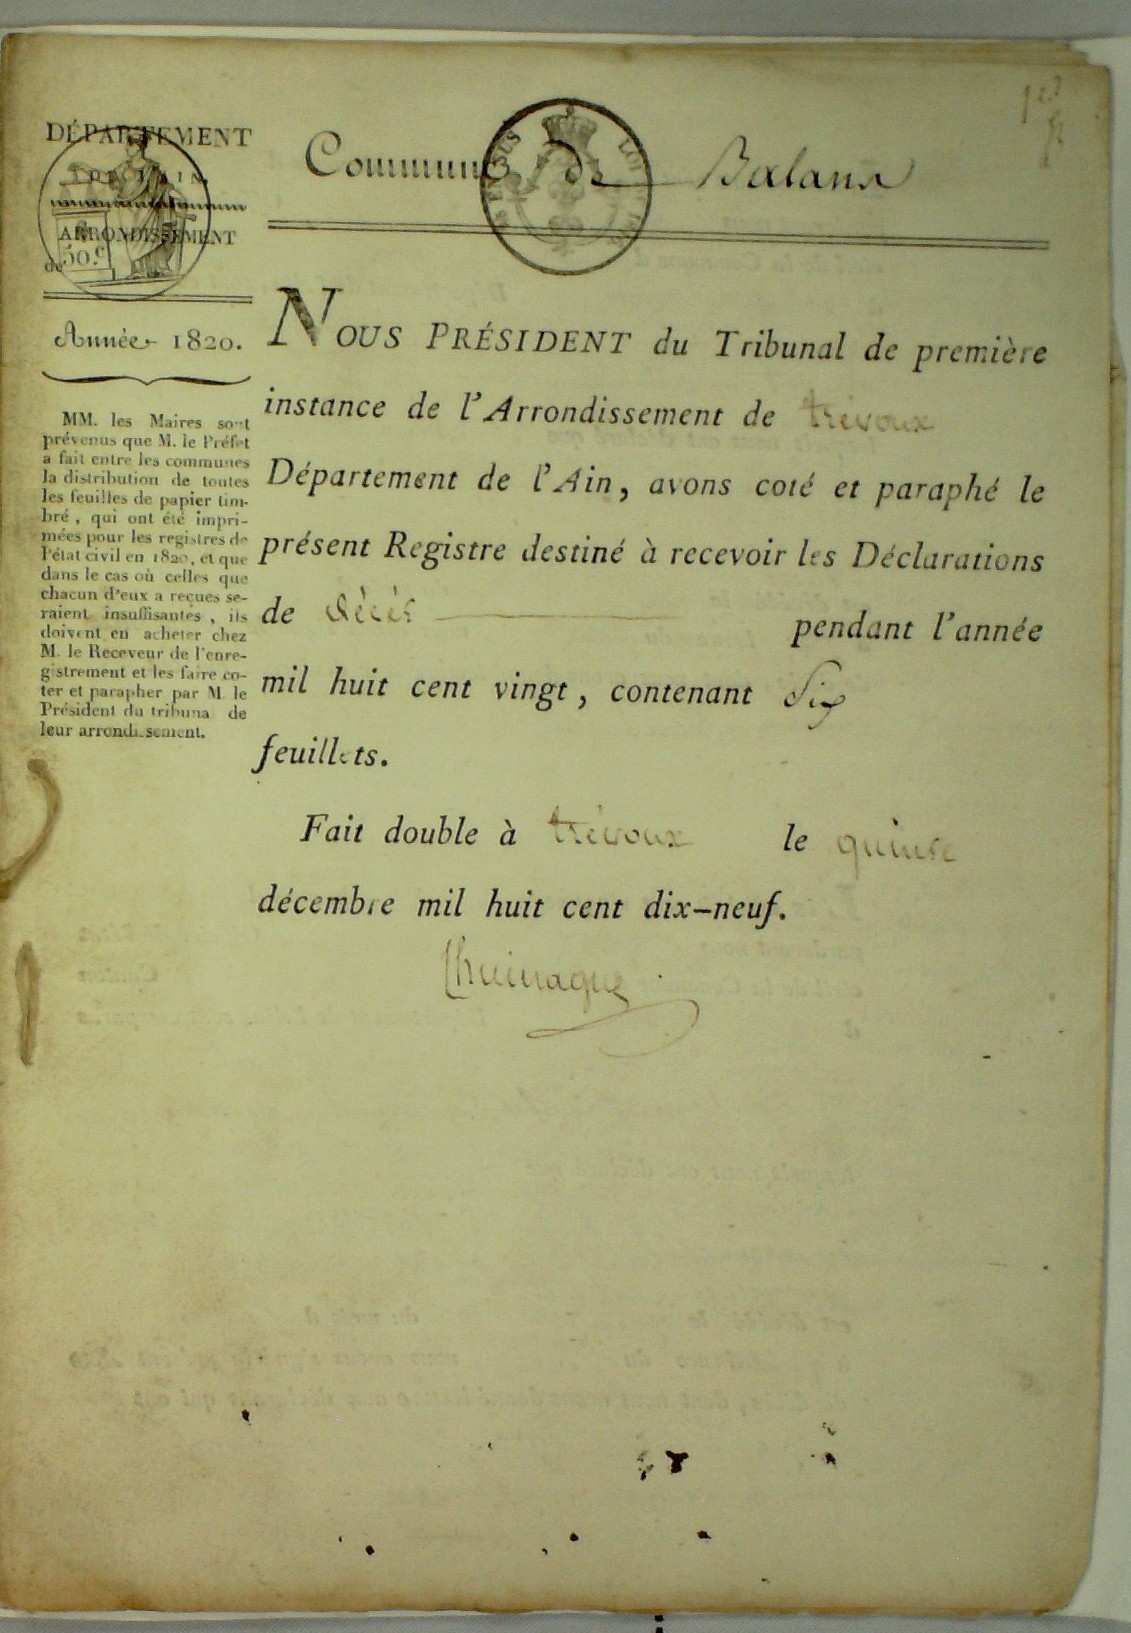 1er
DÉPARTEMENT
DE L'AIN.
ARRONDISSEMENT
de
50.c
Commune de Balans
Année 1820.
MM. les Maires sont
prévenus que M. le Préfet
a fait entre les communes
la distribution de toutes
les feuilles de papier tim-
bré, qui ont été impri-
mées pour les registres de
l'état civil en 1820, et que
dans le cas où celles que
chacun d'eux a reçues se-
raient insuffisantes, ils
doivent en acheter chez
M. le Receveur de l'enre-
gistrement et les faire co-
ter et parapher par M. le
Président du tribuna de
leur arrondissement.
NOUS PRÉSIDENT du Tribunal de première
instance de l'Arrondissement de trévoux
Département de l'Ain, avons coté et paraphé le
présent Registre destiné à recevoir les Déclarations
de décès pendant l'année
mil huit cent vingt, contenant Six
feuillets.
Fait double à trévoux le quinze
décembre mil huit cent dix-neuf.